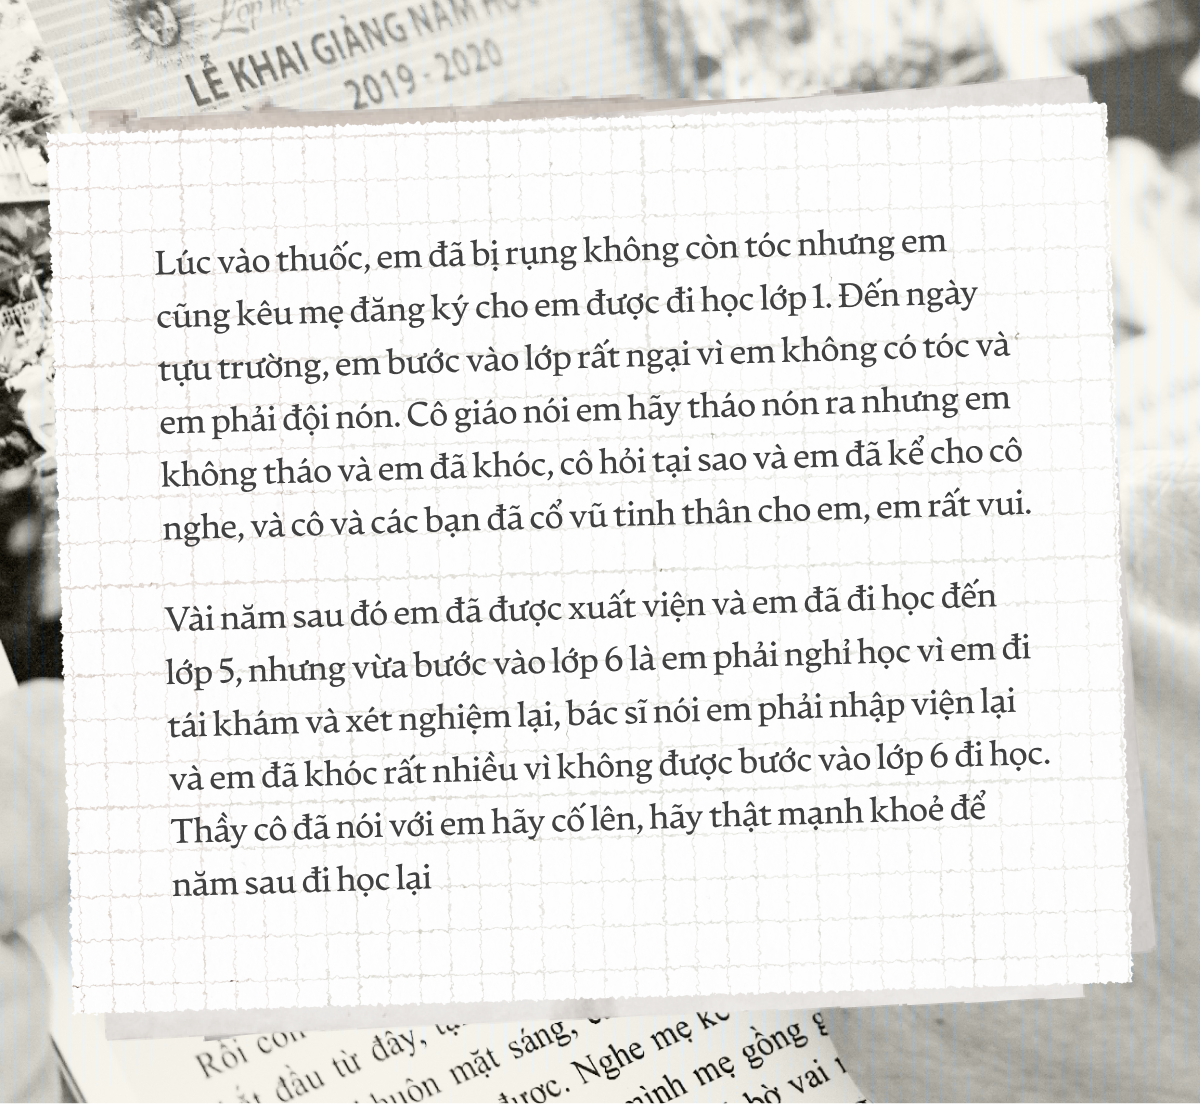 LỄ KHAI GIẢNG NĂM HỌC
2019 - 2020
Lúc vào thuốc, em đã bị rụng không còn tóc nhưng em
cũng kêu mẹ đăng ký cho em được đi học lớp 1. Đến ngày
tựu trường, em bước vào lớp rất ngại vì em không có tóc và
em phải đội nón. Cô giáo nói em hãy tháo nón ra nhưng em
không tháo và em đã khóc, cô hỏi tại sao và em đã kể cho cô
nghe, và cô và các bạn đã cổ vũ tinh thân cho em, em rất vui.
Vài năm sau đó em đã được xuất viện và em đã đi học đến
lớp 5, nhưng vừa bước vào lớp 6 là em phải nghỉ học vì em đi
tái khám và xét nghiệm lại, bác sĩ nói em phải nhập viện lại
và em đã khóc rất nhiều vì không được bước vào lớp 6 đi học.
Thầy cô đã nói với em hãy cố lên, hãy thật mạnh khoẻ để
năm sau đi học lại
Rồi con
đầu từ đây,
mặt sáng,
được. Nghe mẹ
mình mẹ gồng
bờ vai